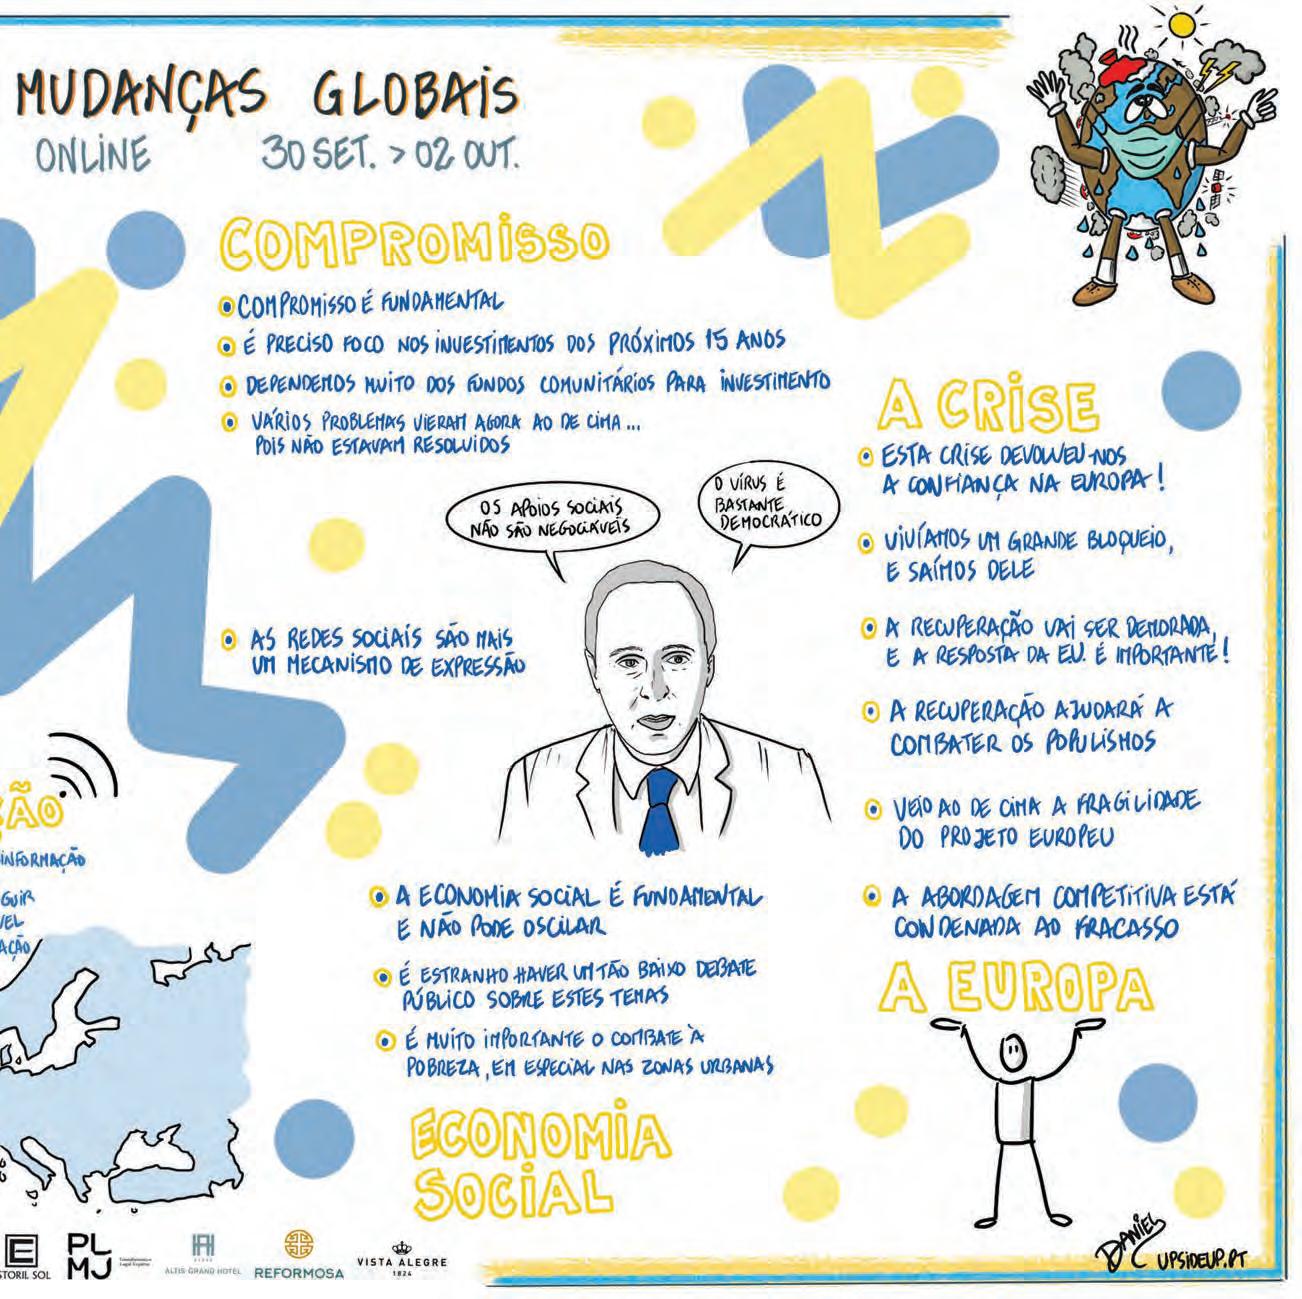 MUDANÇAS GLOBAIS
ONLINE 30 SET. > 02 OUT.
COMPROMISSO
COMPROMISSO É FUNDAMENTAL
É PRECISO FOCO NOS INVESTIMENTOS DOS PRÓXIMOS 15 ANOS
DEPENDEMOS MUITO DOS FUNDOS COMUNITÁRIOS PARA INVESTIMENTO
VÁRIOS PROBLEMAS VIERAM AGORA AO DE CIMA...
POIS NÃO ESTAVAM RESOLVIDOS
OS APOIOS SOCIAIS
NÃO SÃO NEGOCIÁVEIS
O VÍRUS É
BASTANTE
DEMOCRÁTICO
AS REDES SOCIAIS SÃO MAIS
UM MECANISMO DE EXPRESSÃO
ÇÃO
INFORMAÇÃO
GUIR
VEL
AÇÃO
A ECONOMIA SOCIAL É FUNDAMENTAL
E NÃO PODE OSCILAR
É ESTRANHO HAVER UM TÃO BAIXO DEBATE
PÚBLICO SOBRE ESTES TEMAS
É MUITO IMPORTANTE O COMBATE À
POBREZA, EM ESPECIAL NAS ZONAS URBANAS
ECONOMIA
SOCIAL
A CRISE
ESTA CRISE DEVOLVEU-NOS
A CONFIANÇA NA EUROPA!
VIVÍAMOS UM GRANDE BLOQUEIO,
E SAÍMOS DELE
A RECUPERAÇÃO VAI SER DEMORADA,
E A RESPOSTA DA EU. É IMPORTANTE!
A RECUPERAÇÃO AJUDARÁ A
COMBATER OS POPULISMOS
VEIO AO DE CIMA A FRAGILIDADE
DO PROJETO EUROPEU
A ABORDAGEM COMPETITIVA ESTÁ
CONDENADA AO FRACASSO
A EUROPA
DANIEL
UPSIDEUP.PT
STORIL SOL
PL
MJ
ALTIS GRAND HOTEL
REFORMOSA
VISTA ALEGRE
1824